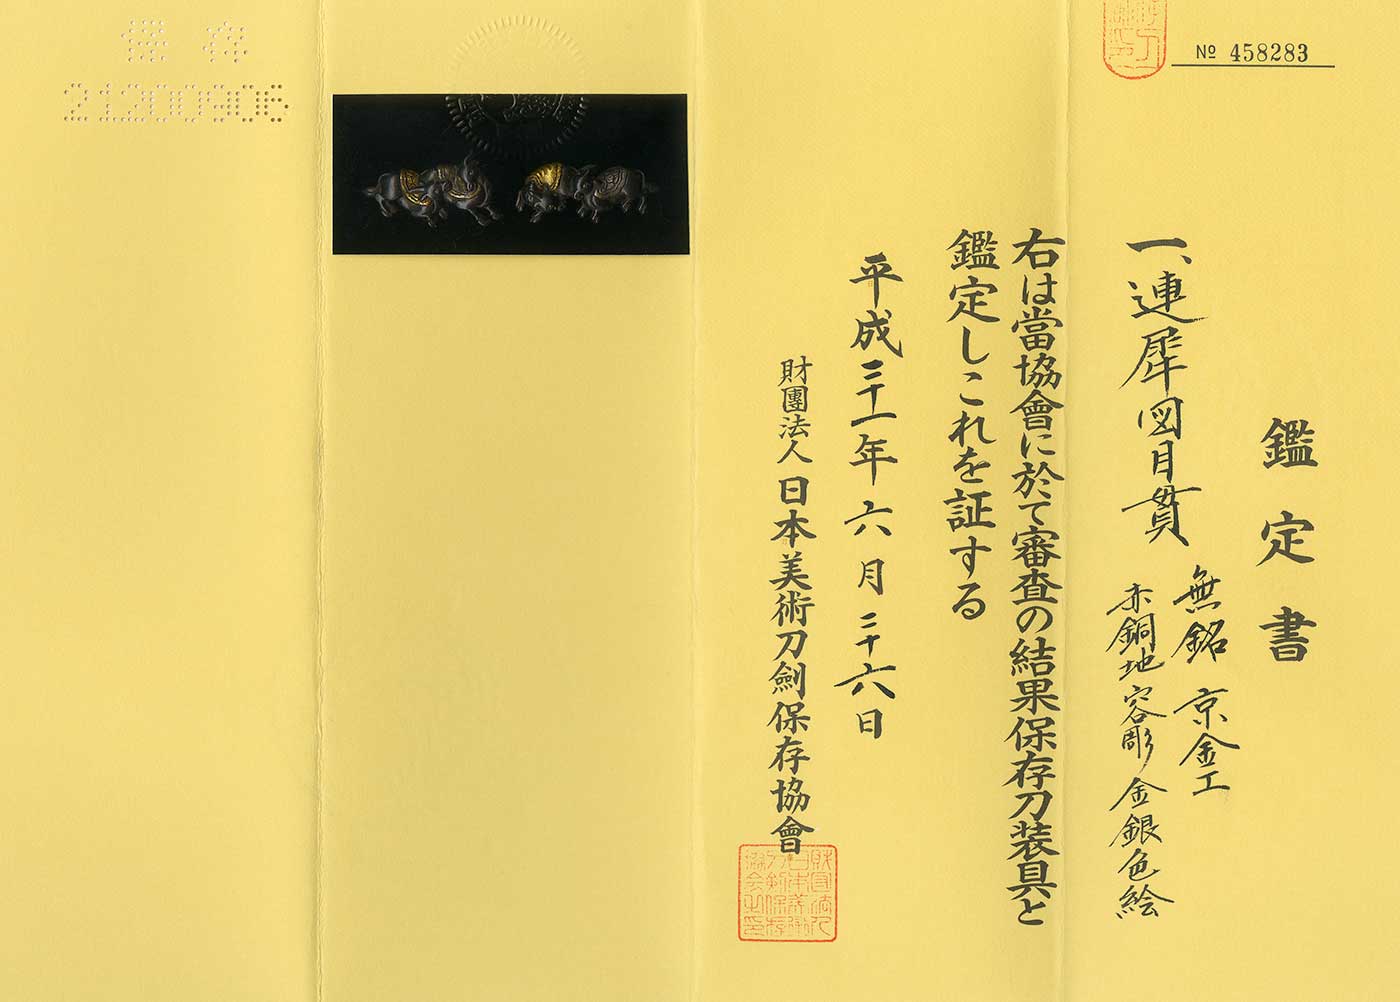 Nº 458283
鑑定書
一、連犀図目貫
無銘 京金工
赤銅地 容彫 金銀色絵
右は當協會に於て審査の結果保存刀装具と
鑑定しこれを証する
平成二十一年六月二十六日
財團法人 日本美術刀劍保存協會
財団法人
日本美術
刀剣保存
協会之印
保存
21200906